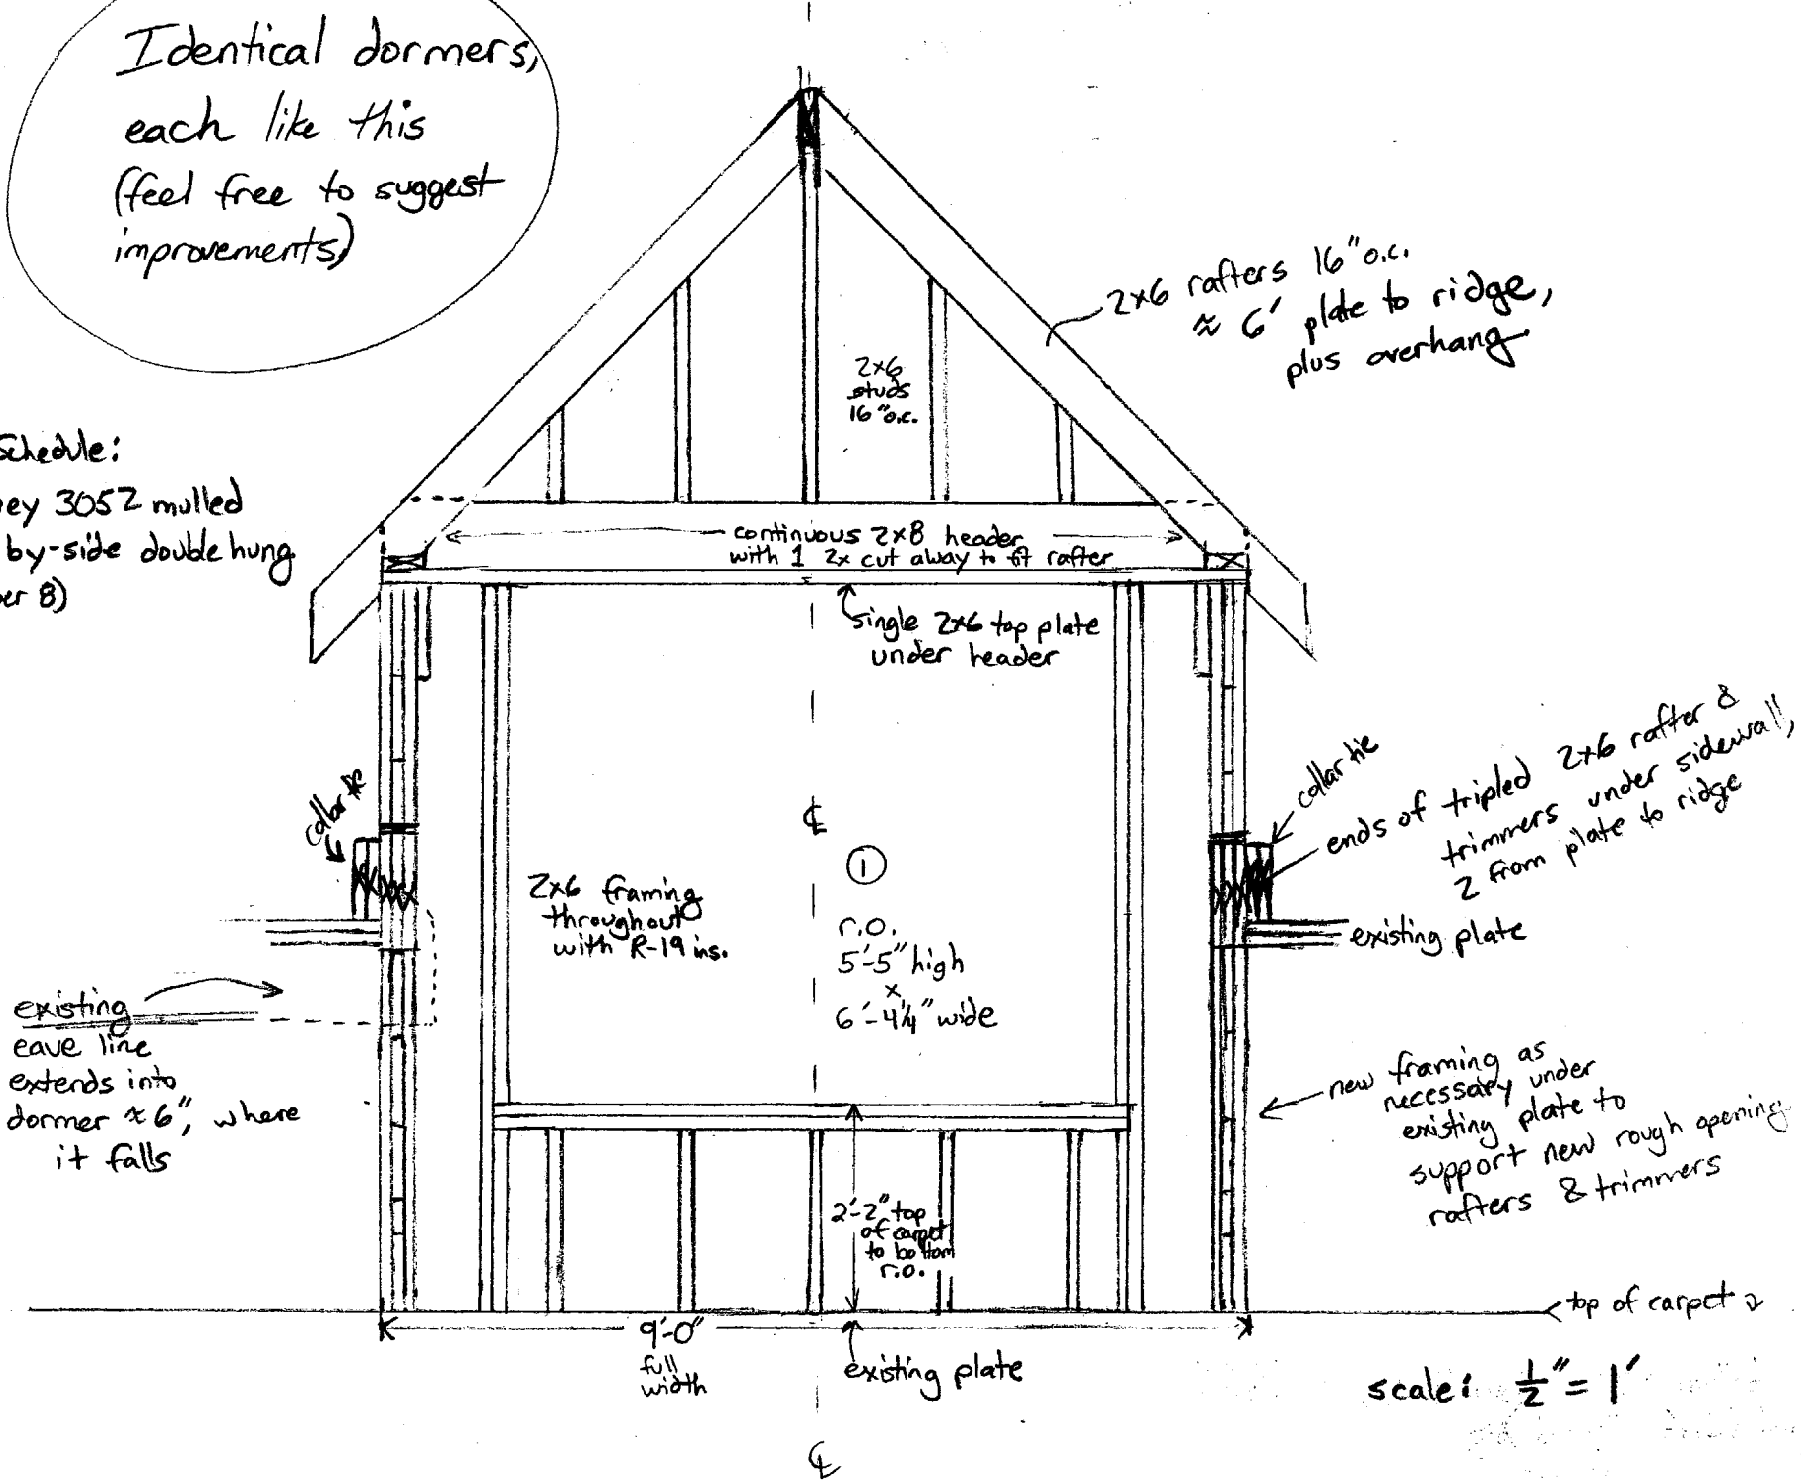 Identical dormers,
each like this
(feel free to suggest
improvements)
2x6 rafters 16" o.c.
≈ 6' plate to ridge,
plus overhang
2x6
studs
16" o.c.
Schedule:
ey 3052 mulled
by-side double hung
er 8)
continuous 2x8 header
with 1 2x cut away to fit rafter
single 2x6 top plate
under header
collar tie
collar tie
ends of tripled 2x6 rafter &
trimmers under sidewall,
2 from plate to ridge
℄
1
2x6 framing
throughout
with R-19 ins.
r.o.
5'-5" high
x
6'-4¼" wide
existing plate
existing
eave line
extends into
dormer ≈ 6", where
it falls
new framing as
necessary under
existing plate to
support new rough opening
rafters & trimmers
2'-2" top
of carpet
to bottom
r.o.
top of carpet
9'-0"
full
width
existing plate
scale: ½" = 1'
℄